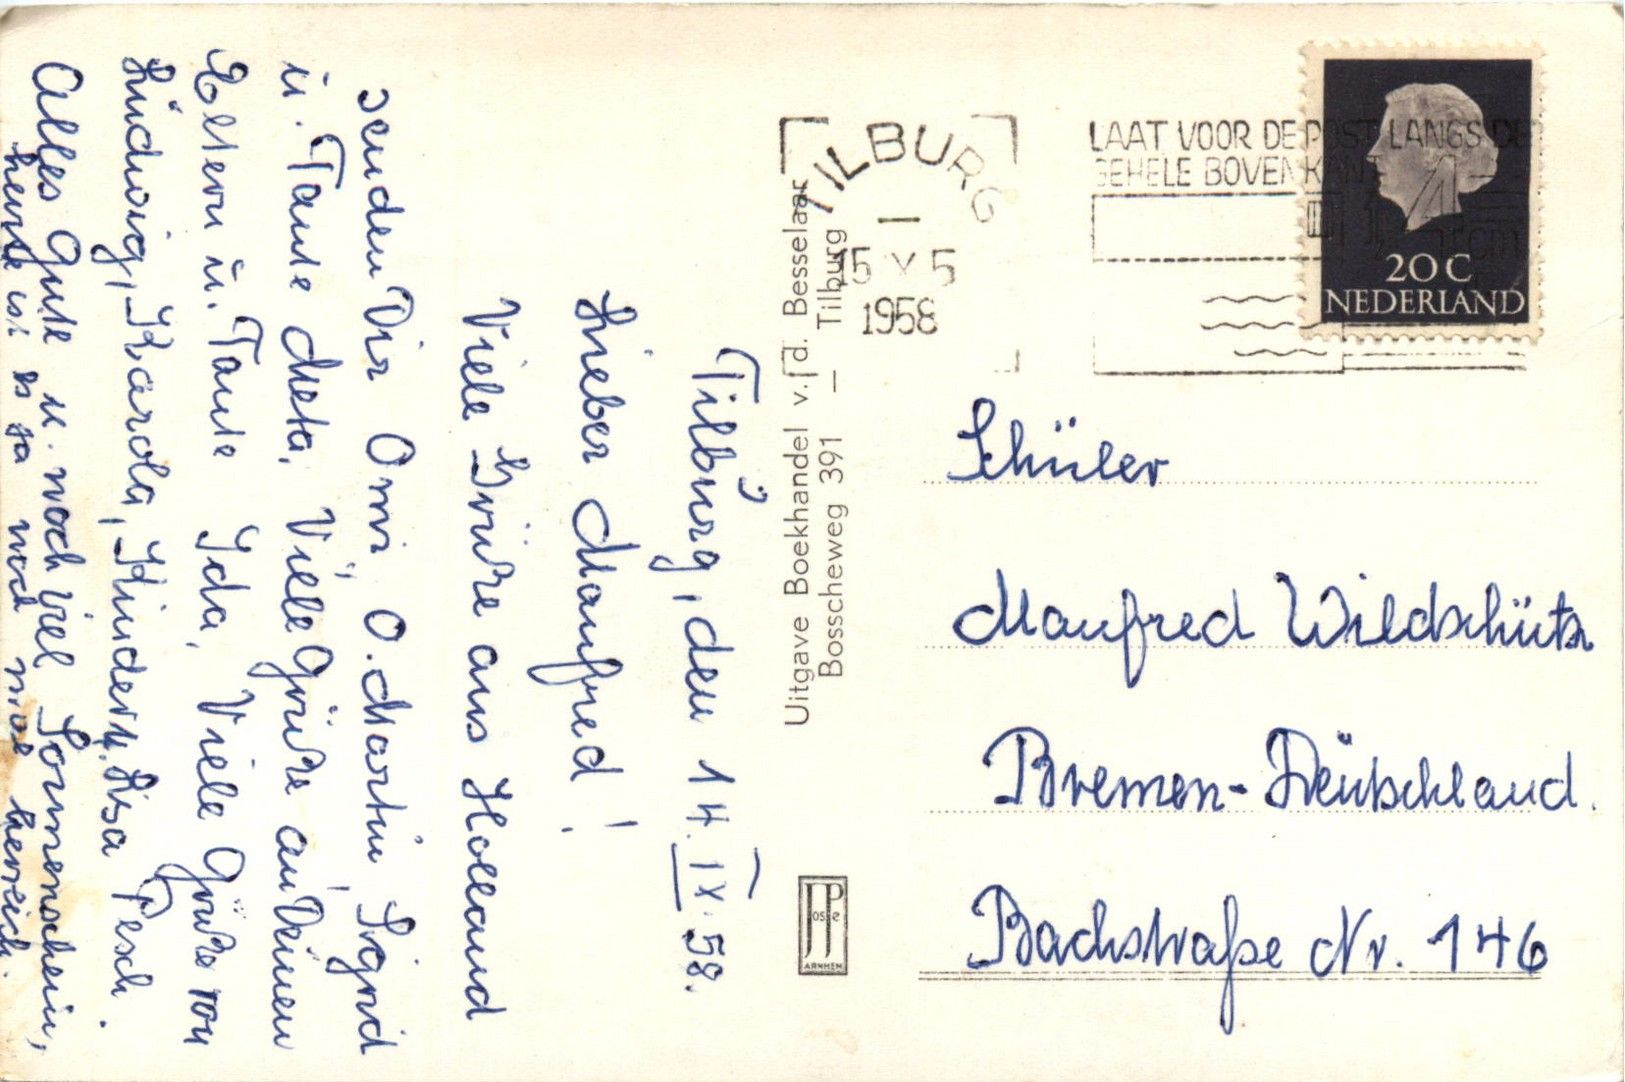 Tilburg, den 14. IX. 58.
Lieber Manfred!
Viele Grüße aus Holland
senden Dir Omi, O. Martin, Sigrid
u. Tante Meta. Viele Grüße an Deinen
Eltern u. Tante Ida. Viele Grüße von
Ludwig, Karola, Kindern, Lisa Pesch.
Alles Gute u. noch viel Sonnenschein,
heute ist es ja noch mal herrlich.
Uitgave Boekhandel v. d. Besselaar
Bosscheweg 391 — Tilburg
JosPe
ARNHEM
TILBURG
15 V 5
1958
LAAT VOOR DE POST LANGS DE
GEHELE BOVENKANT
4
cm
20 C
NEDERLAND
Schüler
Manfred Wildschütz
Bremen-Deutschland.
Bachstraße Nr. 146